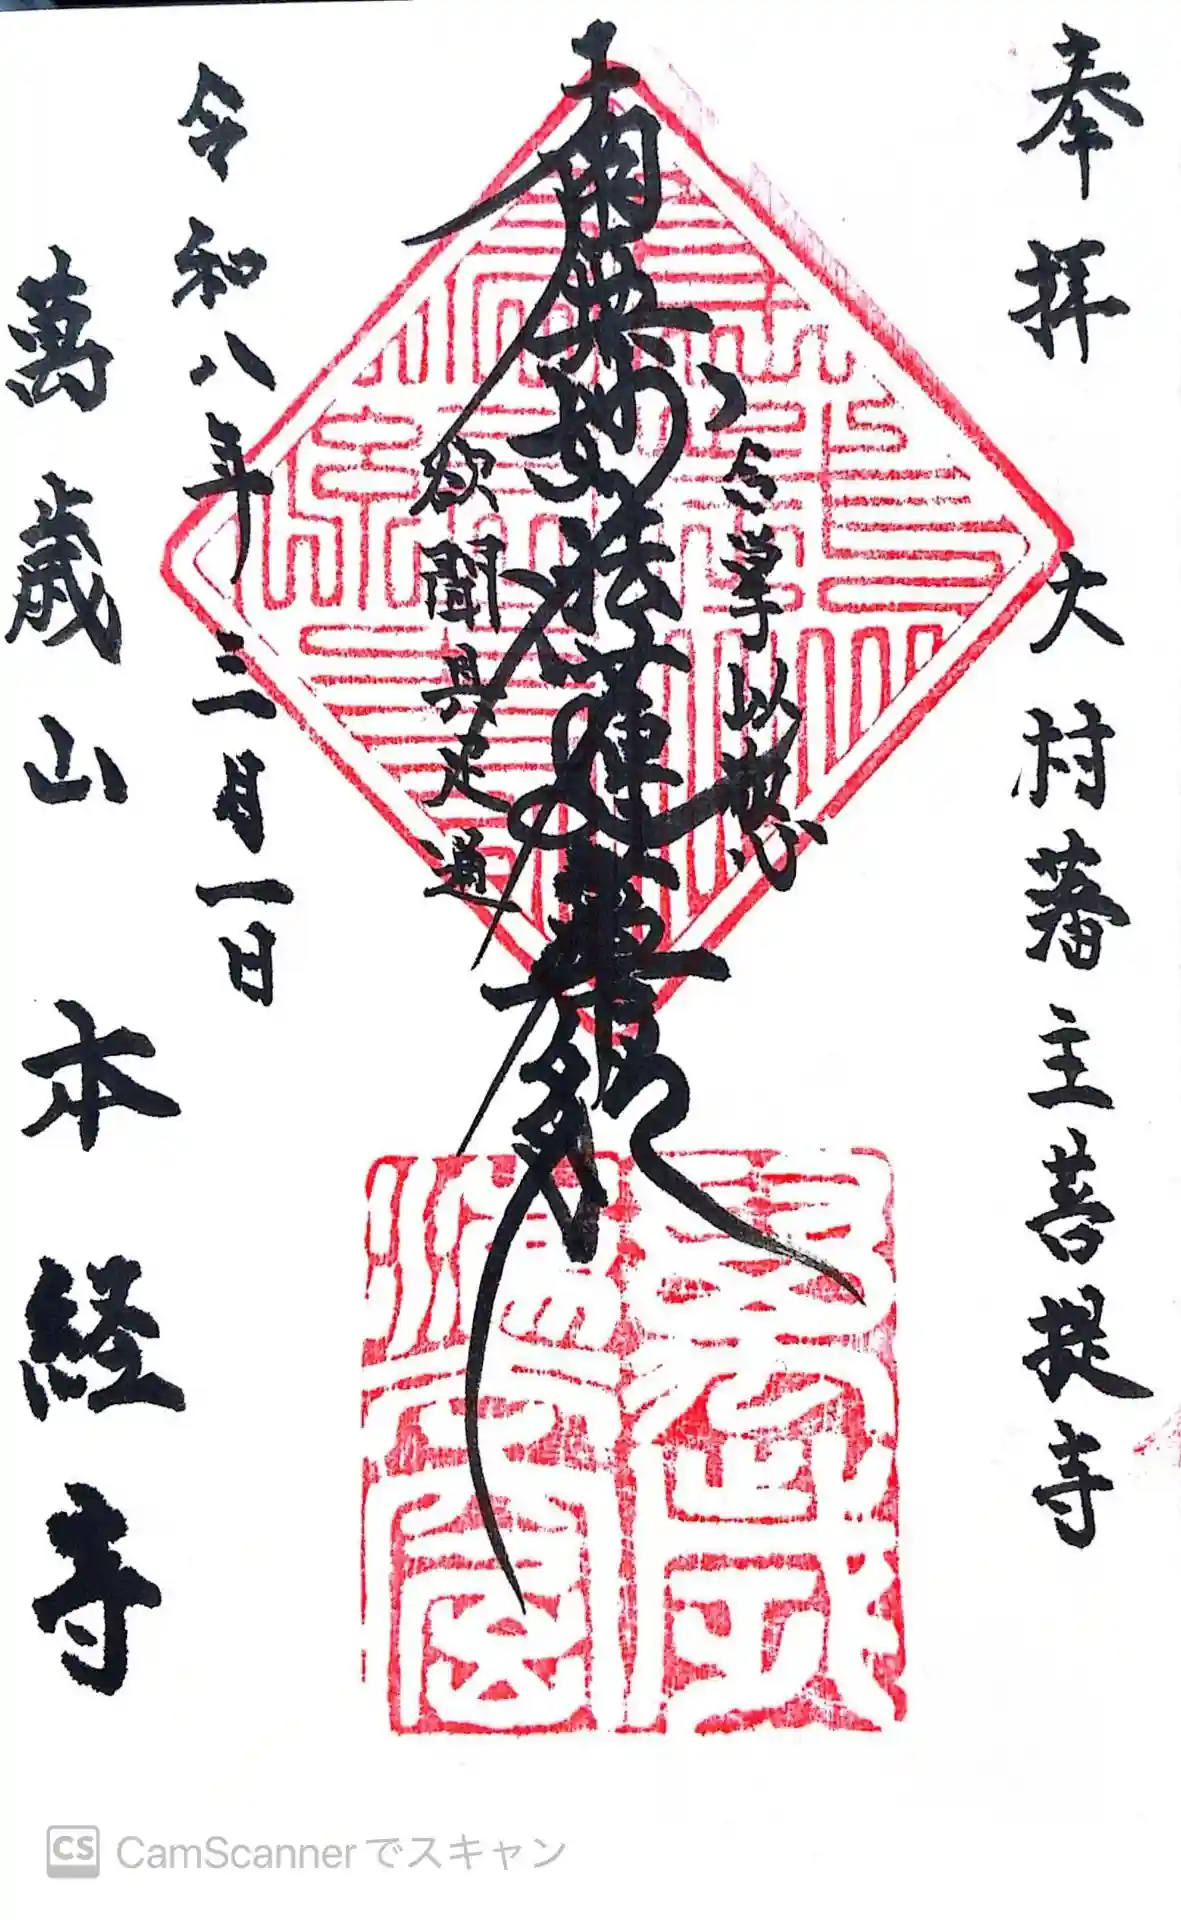 奉拝 大村藩主菩提寺
合掌以敬心
南無妙法蓮華経
欲聞具足道
令和八年三月一日
萬歳山 本経寺
CS CamScannerでスキャン